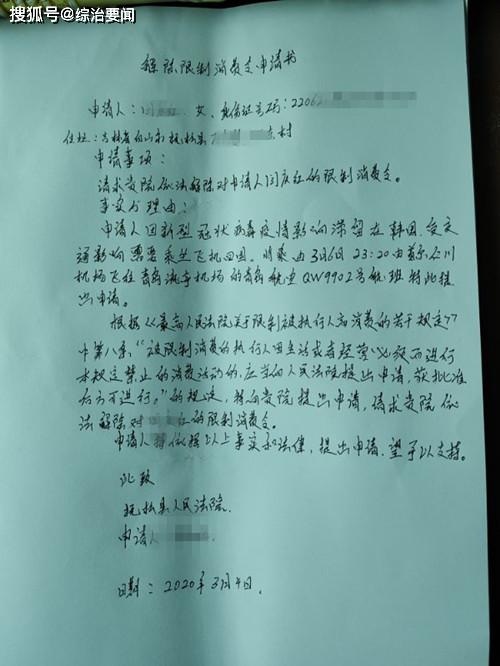 搜狐号@综治要闻
解除限制消费令申请书
申请人：闫 女、身份证号码：22062
住址：吉林省白山市抚松县 村
申请事项：
请求贵院依法解除对申请人闫庆红的限制消费令。
事实与理由：
申请人因新型冠状病毒疫情影响滞留在韩国，受交
通影响票需乘坐飞机回国，将乘由3月6日23:20由首尔仁川
机场飞往青岛流亭机场的青岛航空QW9902号航班特此提
出申请。
根据《最高人民法院关于限制被执行人高消费的若干规定》
中第八条，“被限制消费的执行人因生活或者经营必须而进行
本规定禁止的消费活动的，应当向人民法院提出申请，获批准
后方可进行。”的规定，特向贵院提出申请，请求贵院依
法解除对 红的限制消费令。
申请人 依据以上事实和法律，提出申请，望予以支持。
此致
抚松县人民法院
申请人
日期：2020年3月4日.